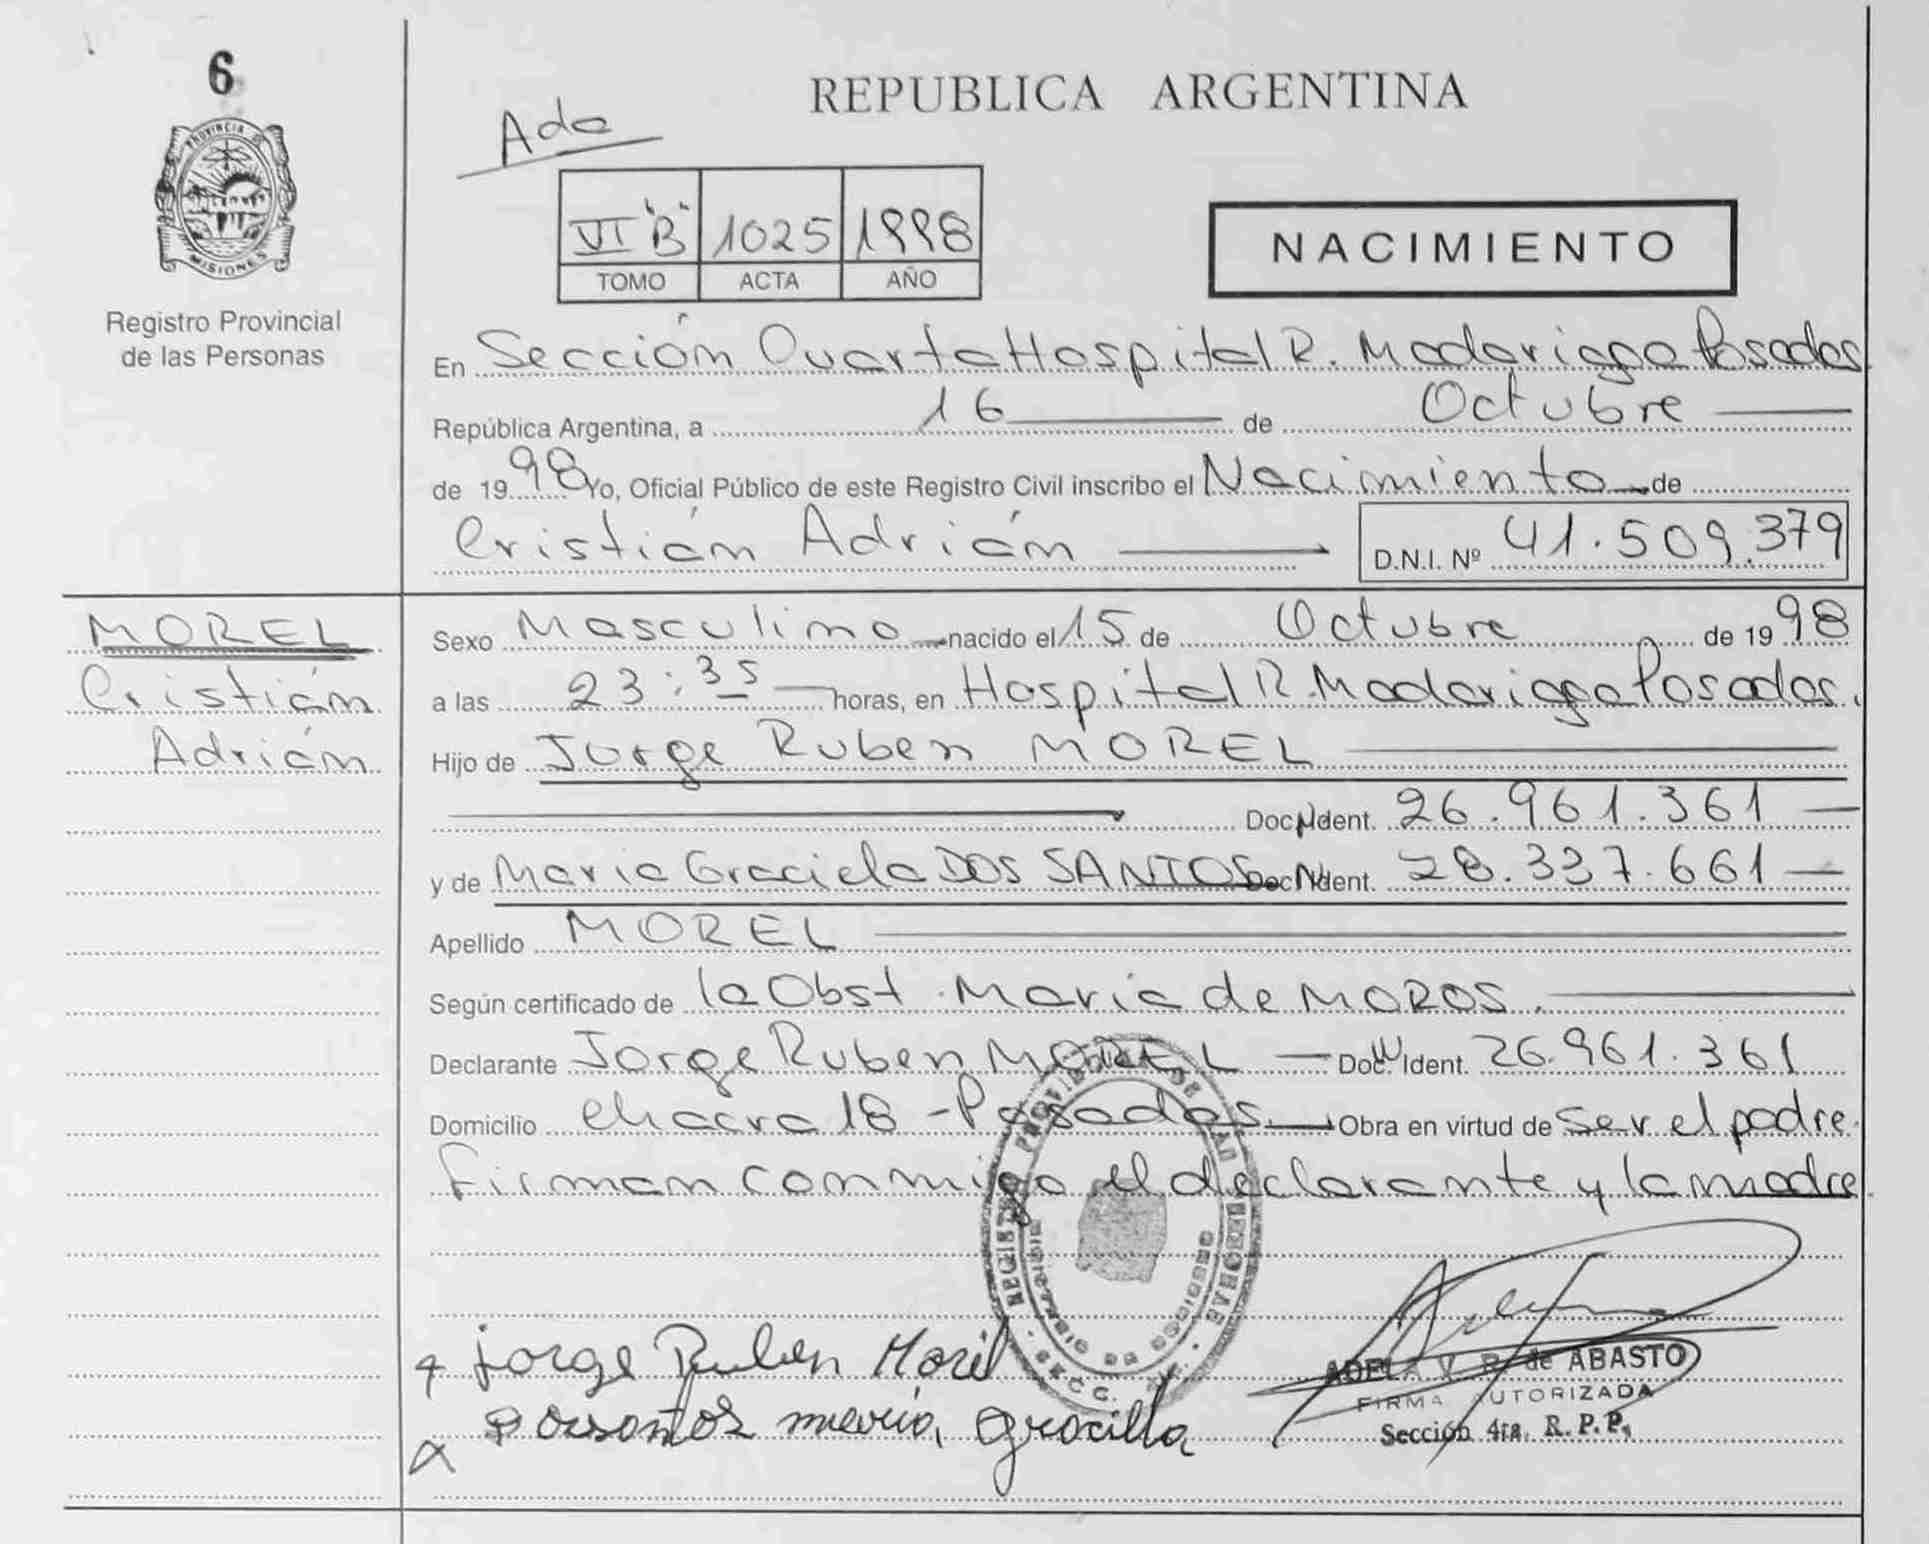 6
PROVINCIA DE
MISIONES
Registro Provincial
de las Personas
REPUBLICA ARGENTINA
Ada
VI "B" 1025 1998
TOMO ACTA AÑO
NACIMIENTO
En Sección Cuarta Hospital R. Madariaga Posadas
República Argentina, a 16 de Octubre
de 1998 Yo, Oficial Público de este Registro Civil inscribo el Nacimiento de
Cristián Adrián D.N.I. Nº 41.509.379
MOREL
Cristián
Adrián
Sexo Masculino nacido el 15 de Octubre de 1998
a las 23:35 horas, en Hospital R. Madariaga Posadas.
Hijo de Jorge Ruben MOREL
Doc N Ident. 26.961.361
y de Maria Graciela DOS SANTOS Doc N Ident. 28.337.661
Apellido MOREL
Según certificado de la Obst. Maria de MOROS.
Declarante Jorge Ruben MOREL Doc N Ident. 26.961.361
Domicilio chacra 18 - Posadas Obra en virtud de ser el padre.
Firman conmigo el declarante y la madre.
REGISTRO PROVINCIAL DE LAS PERSONAS
SECC.
Jorge Ruben Morel
dossantos maria, gracilla
ADELA V. R. de ABASTO
FIRMA AUTORIZADA
Sección 4ta. R.P.P.